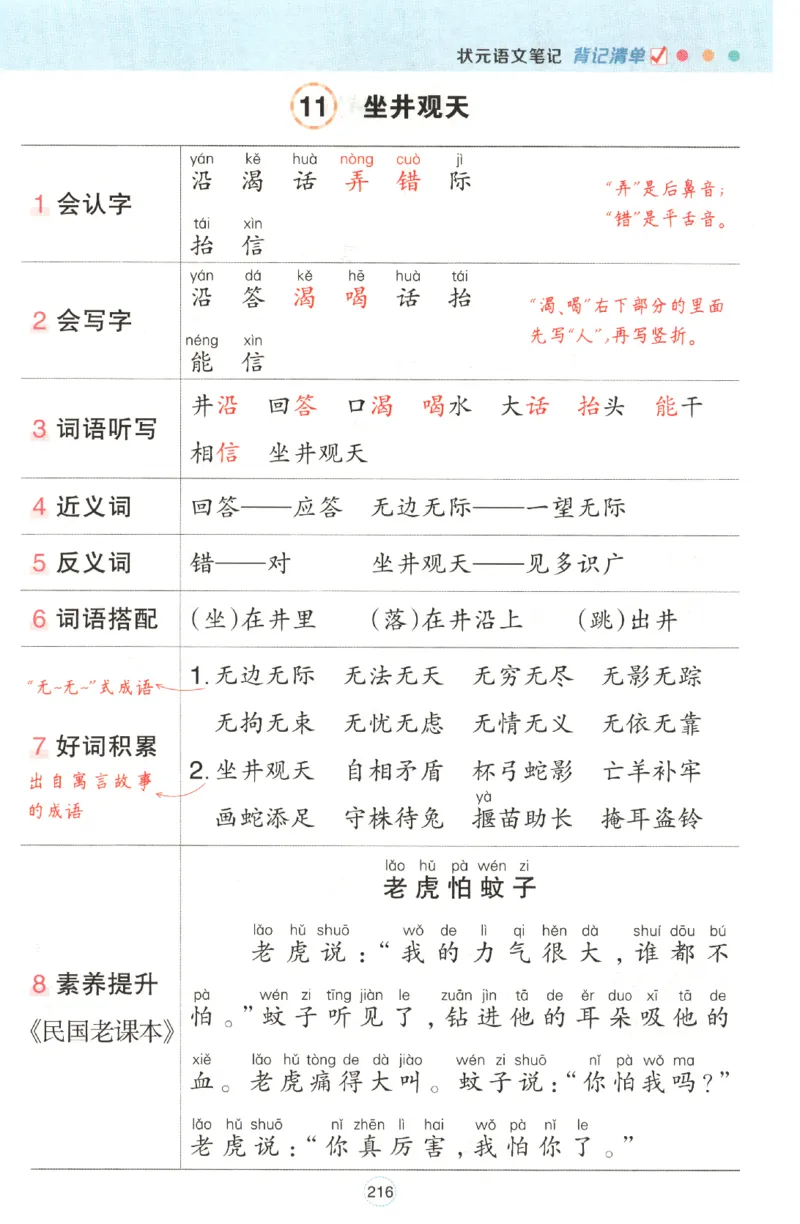 状元语文笔记 背记清单
11 坐井观天
1 会认字
yán kě huà nòng cuò jì
沿 渴 话 弄 错 际
tái xìn
抬 信
“弄”是后鼻音；
“错”是平舌音。
2 会写字
yán dá kě hē huà tái
沿 答 渴 喝 话 抬
néng xìn
能 信
“渴、喝”右下部分的里面
先写“人”,再写竖折。
3 词语听写
井沿 回答 口渴 喝水 大话 抬头 能干
相信 坐井观天
4 近义词
回答——应答 无边无际——一望无际
5 反义词
错——对 坐井观天——见多识广
6 词语搭配
(坐)在井里 (落)在井沿上 (跳)出井
“无~无~”式成语
7 好词积累
出自寓言故事
的成语
1. 无边无际 无法无天 无穷无尽 无影无踪
无拘无束 无忧无虑 无情无义 无依无靠
2. 坐井观天 自相矛盾 杯弓蛇影 亡羊补牢
yà
画蛇添足 守株待兔 揠苗助长 掩耳盗铃
8 素养提升
《民国老课本》
lǎo hǔ pà wén zi
老虎怕蚊子
lǎo hǔ shuō wǒ de lì qi hěn dà shuí dōu bú
老虎说：“我的力气很大，谁都不
pà wén zi tīng jiàn le zuān jìn tā de ěr duo xī tā de
怕。”蚊子听见了，钻进他的耳朵吸他的
xiě lǎo hǔ tòng de dà jiào wén zi shuō nǐ pà wǒ ma
血。老虎痛得大叫。蚊子说：“你怕我吗？”
lǎo hǔ shuō nǐ zhēn lì hai wǒ pà nǐ le
老虎说：“你真厉害，我怕你了。”
216